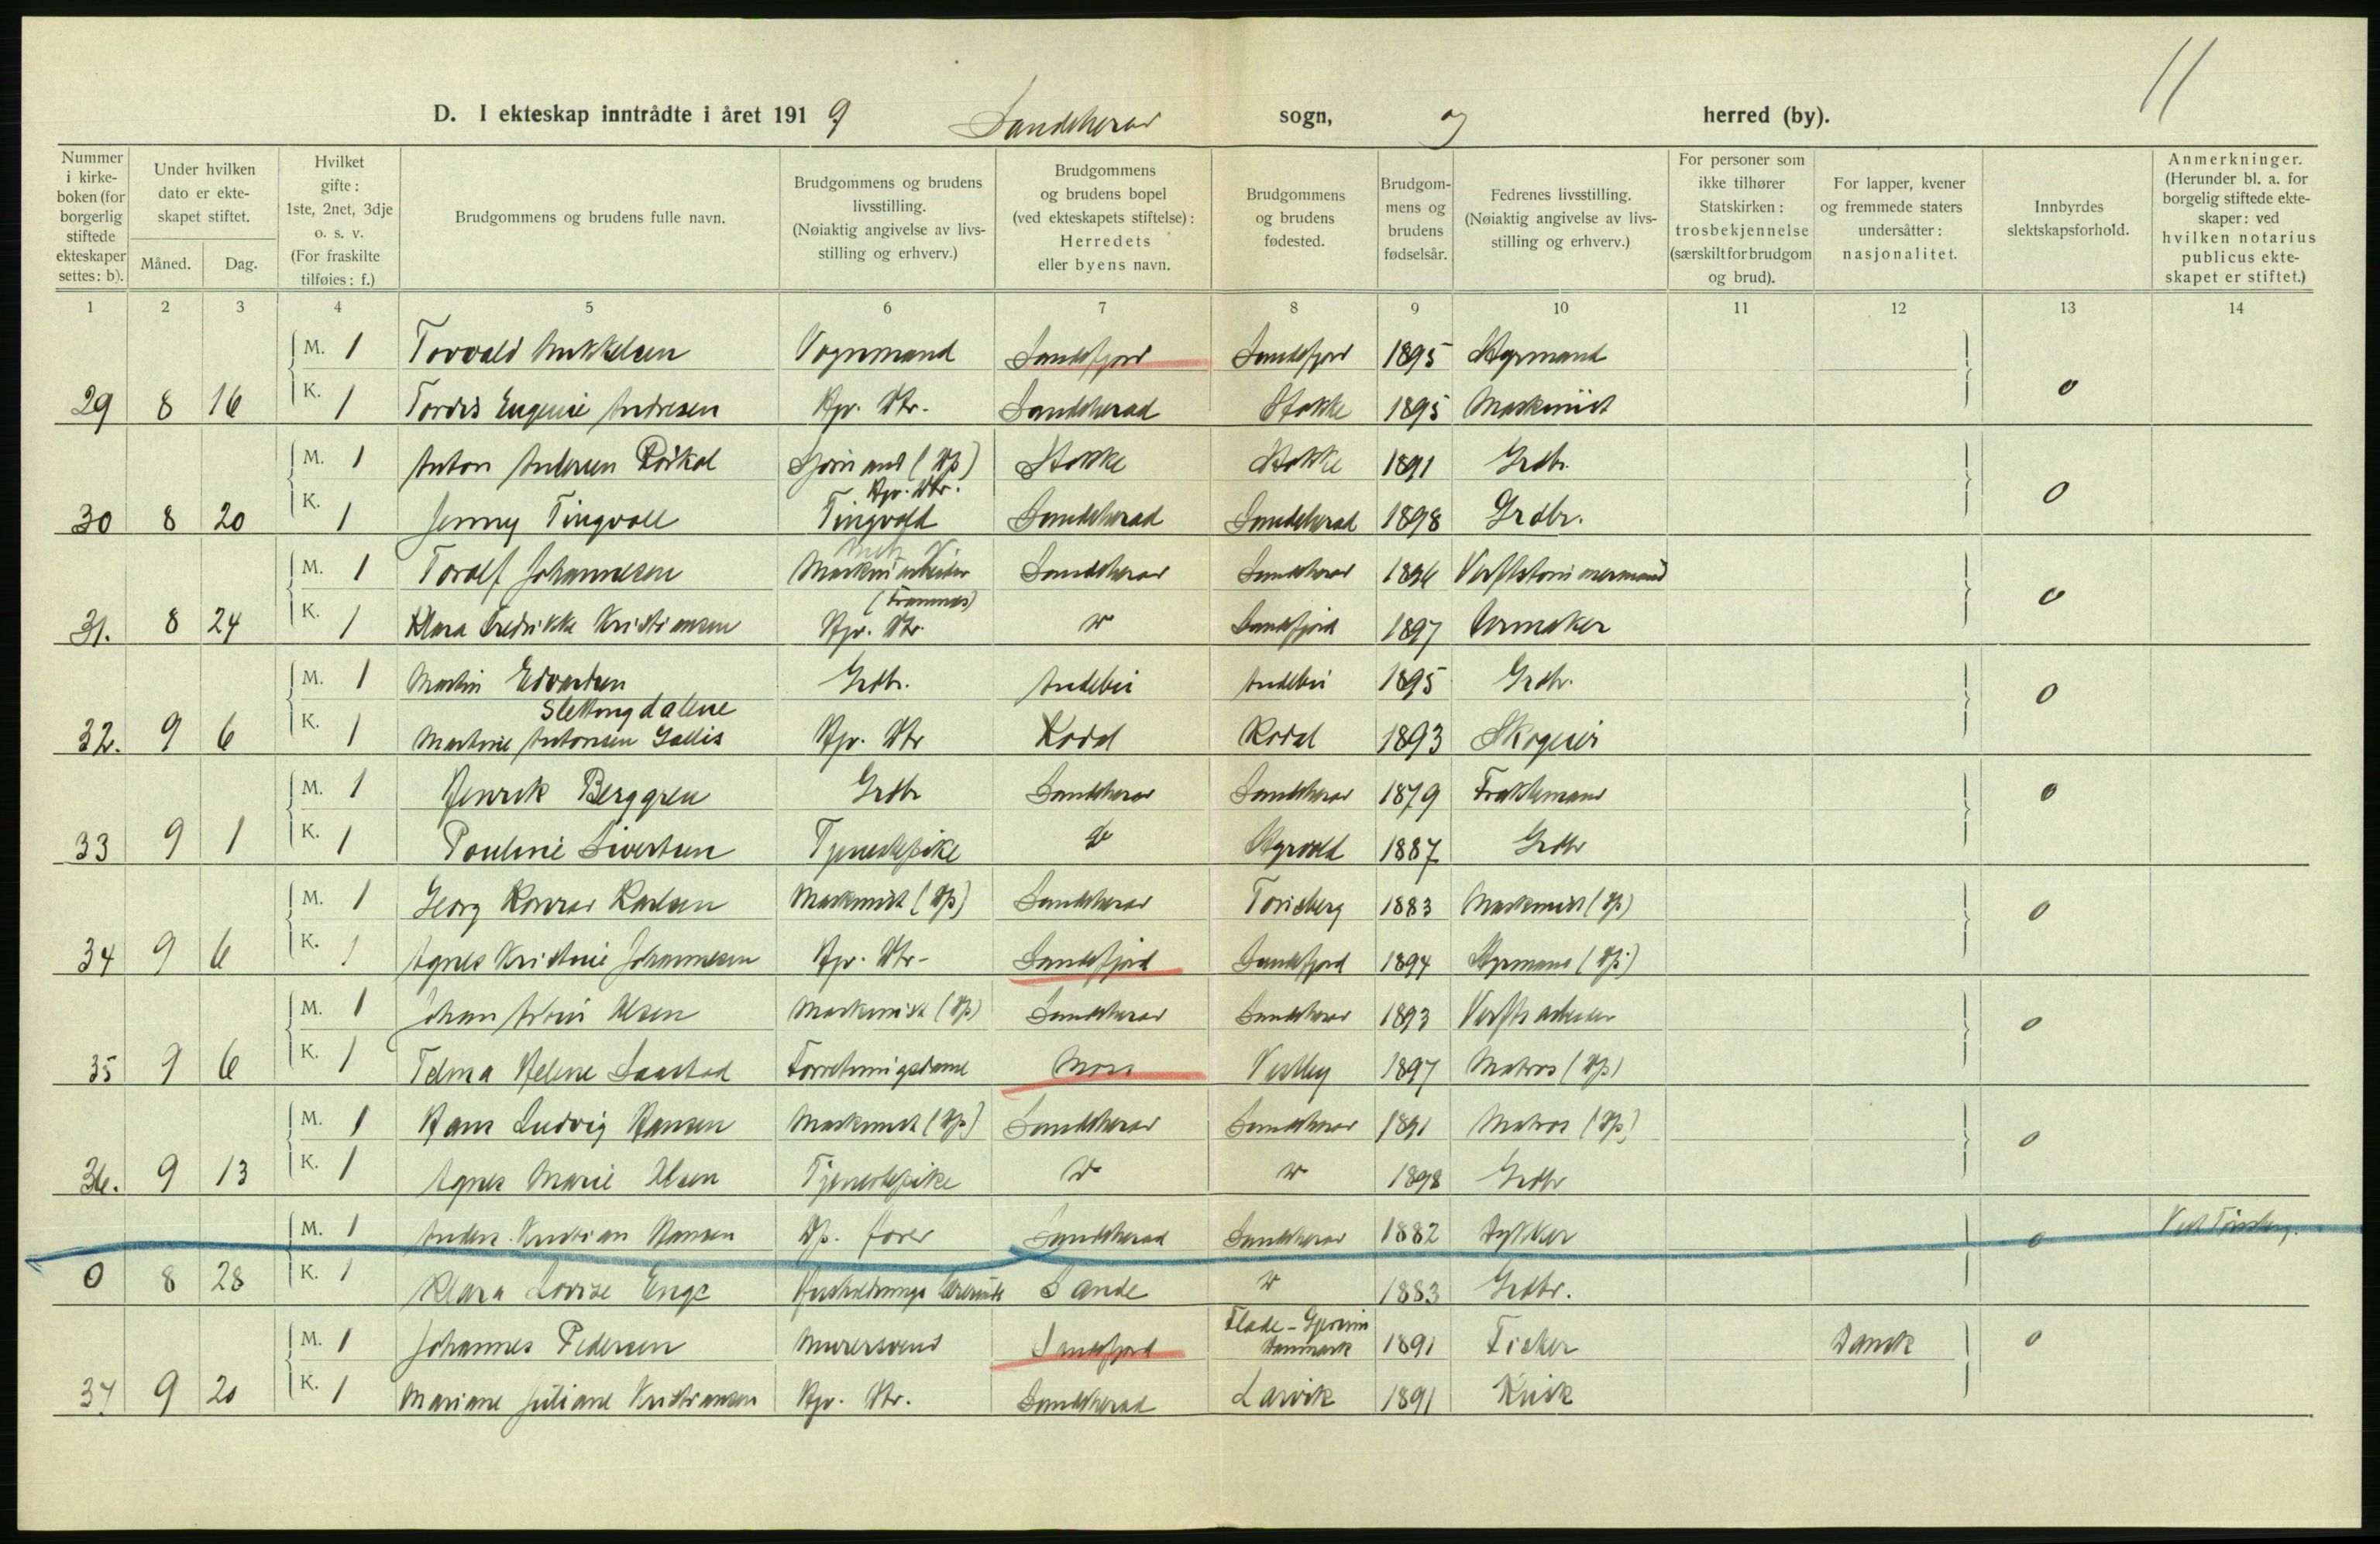 11
D. I ekteskap inntrådte i året 1919 Sandeherad sogn, og herred (by).
Nummer i kirke-boken (for borgerlig stiftede ekteskaper settes: b).
Under hvilken dato er ekte-skapet stiftet.
Måned. Dag.
Hvilket gifte: 1ste, 2net, 3dje o. s. v. (For fraskilte tilføies: f.)
Brudgommens og brudens fulle navn.
Brudgommens og brudens livsstilling. (Nøiaktig angivelse av livs-stilling og erhverv.)
Brudgommens og brudens bopel (ved ekteskapets stiftelse): Herredets eller byens navn.
Brudgommens og brudens fødested.
Brudgom-mens og brudens fødselsår.
Fedrenes livsstilling. (Nøiaktig angivelse av livs-stilling og erhverv.)
For personer som ikke tilhører Statskirken: trosbekjennelse (særskilt for brudgom og brud).
For lapper, kvener og fremmede staters undersåtter: nasjonalitet.
Innbyrdes slektskapsforhold.
Anmerkninger. (Herunder bl. a. for borgelig stiftede ekte-skaper: ved hvilken notarius publicus ekte-skapet er stiftet.)
1 2 3 4 5 6 7 8 9 10 11 12 13 14
M. 1 Torvald Mikkelsen Vognmand Sandefjord Sandefjord 1895 Styrmand
29 8 16 K. 1 Tordis Eugenie Andresen Hpr. Dtr. Sandeherad Stokke 1895 Maskinist 0
M. 1 Anton Andersen Sjømand (Hp) Stokke Stokke 1891 Grdbr.
Hpr. Dtr.
30 8 20 K. 1 Jenny Tingvold Tingvold Sandeherad Sandeherad 1898 Grdbr. 0
M. 1 Toralf Johannesen Maskinarbeider Sandeherad Sandeherad 1896 Verftstømmermand
(Framnes)
31. 8 24 K. 1 Klara Fredrikke Kristiansen Hpr. Dtr. Do Sandefjord 1897 0
M. 1 Martin Edvardsen Grdbr. Andebu Andebu 1895 Grdbr.
Slettingdalene
32. 9 6 K. 1 Martine Antonsen Gallis Hpr. Dtr Kodal Kodal 1893 Skogeier 0
M. 1 Henrik Berggren Grdbr Sandeherad Sandeherad 1879 Fraktemand 0
33 9 1 K. 1 Pauline Sivertsen Tjenestepike Do 1887 Grdbr
M. 1 Georg Konrad Karlsen Maskinist (Hp) Sandeherad Tønsberg 1883 Maskinist (Hp)
34 9 6 K. 1 Agnes Kristine Johannesen Hpr. Dtr- Sandefjord Sandefjord 1894 Styrmand (Hp) 0
M. 1 Johan Olsen Maskinist (Hp) Sandeherad Sandeherad 1893 Verftsarbeider
35 9 6 K. 1 Telma Helene Saastad Forretningsdame Moss Vestby 1897 Matros (Hp) 0
M. 1 Hans Ludvig Hansen Maskinist (Hp) Sandeherad Sandeherad 1891 Matros (Hp)
36. 9 13 K. 1 Agnes Marie Olsen Tjenestepike Do Do 1898 Grdbr 0
M. 1 Anders Kristian Hansen Hp. fører Sandeherad Sandeherad 1882 Dykker 0 Vestre Tønsberg.
0 8 28 K. 1 Klara Lovise Enge Husholdnings lærerinde Sande Do 1883 Grdbr.
Flade - Gjerum
M. 1 Johannes Pedersen Murersvend Sandefjord Danmark 1891 Fisker Dansk 0
37 9 20 K. 1 Mariane Juliane Kristiansen Hpr. Dtr. Sandeherad Larvik 1891 Kusk